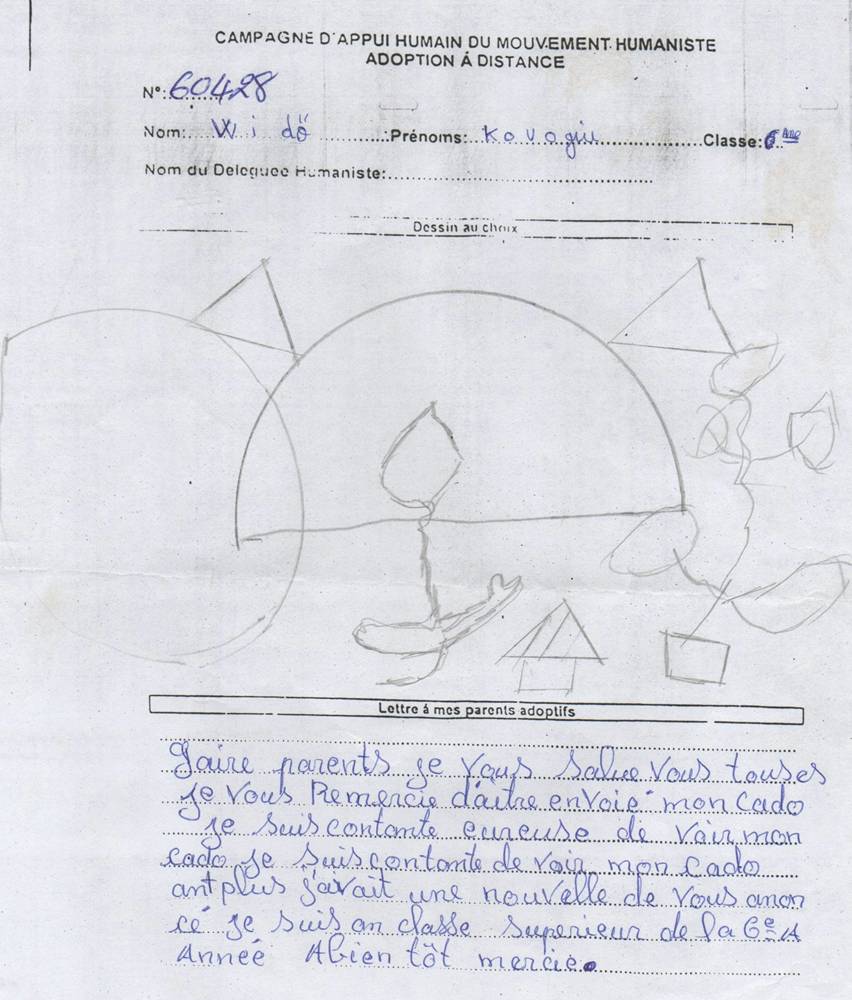 CAMPAGNE D'APPUI HUMAIN DU MOUVEMENT HUMANISTE
ADOPTION Á DISTANCE
N°: 60428
Nom: Widö Prénoms: Kovogui Classe: 6 Ane
Nom du Deleguee Humaniste:
Dessin au choix
Lettre á mes parents adoptifs
Jaire parents je vous salue vous touses
je vous Remercie d'aitre envoie mon Cado
je suis contante eureuse de voir mon
cado je suis contante de voir mon Cado
ant plus j'avait une nouvelle de vous anon
cé je suis an classe superieur de la 6e A
Année Abien tôt mercie.